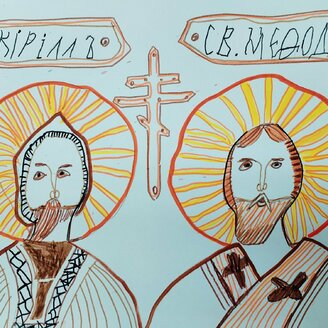 КІРІЛЛЪ
СВ. МЕѲОД